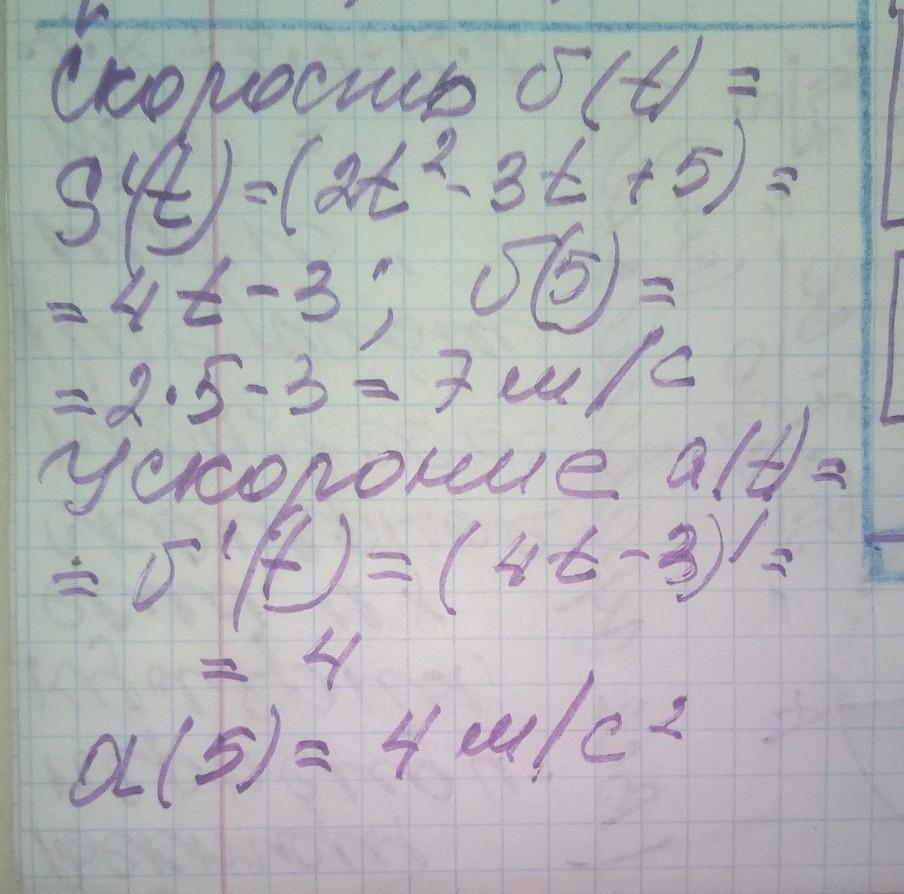 Скорость υ(t) =
S'(t) = (2t² - 3t + 5) =
= 4t - 3; υ(5) =
= 2·5 - 3 = 7 м/с
Ускорение a(t) =
= υ'(t) = (4t - 3)' =
= 4
a(5) = 4 м/с²